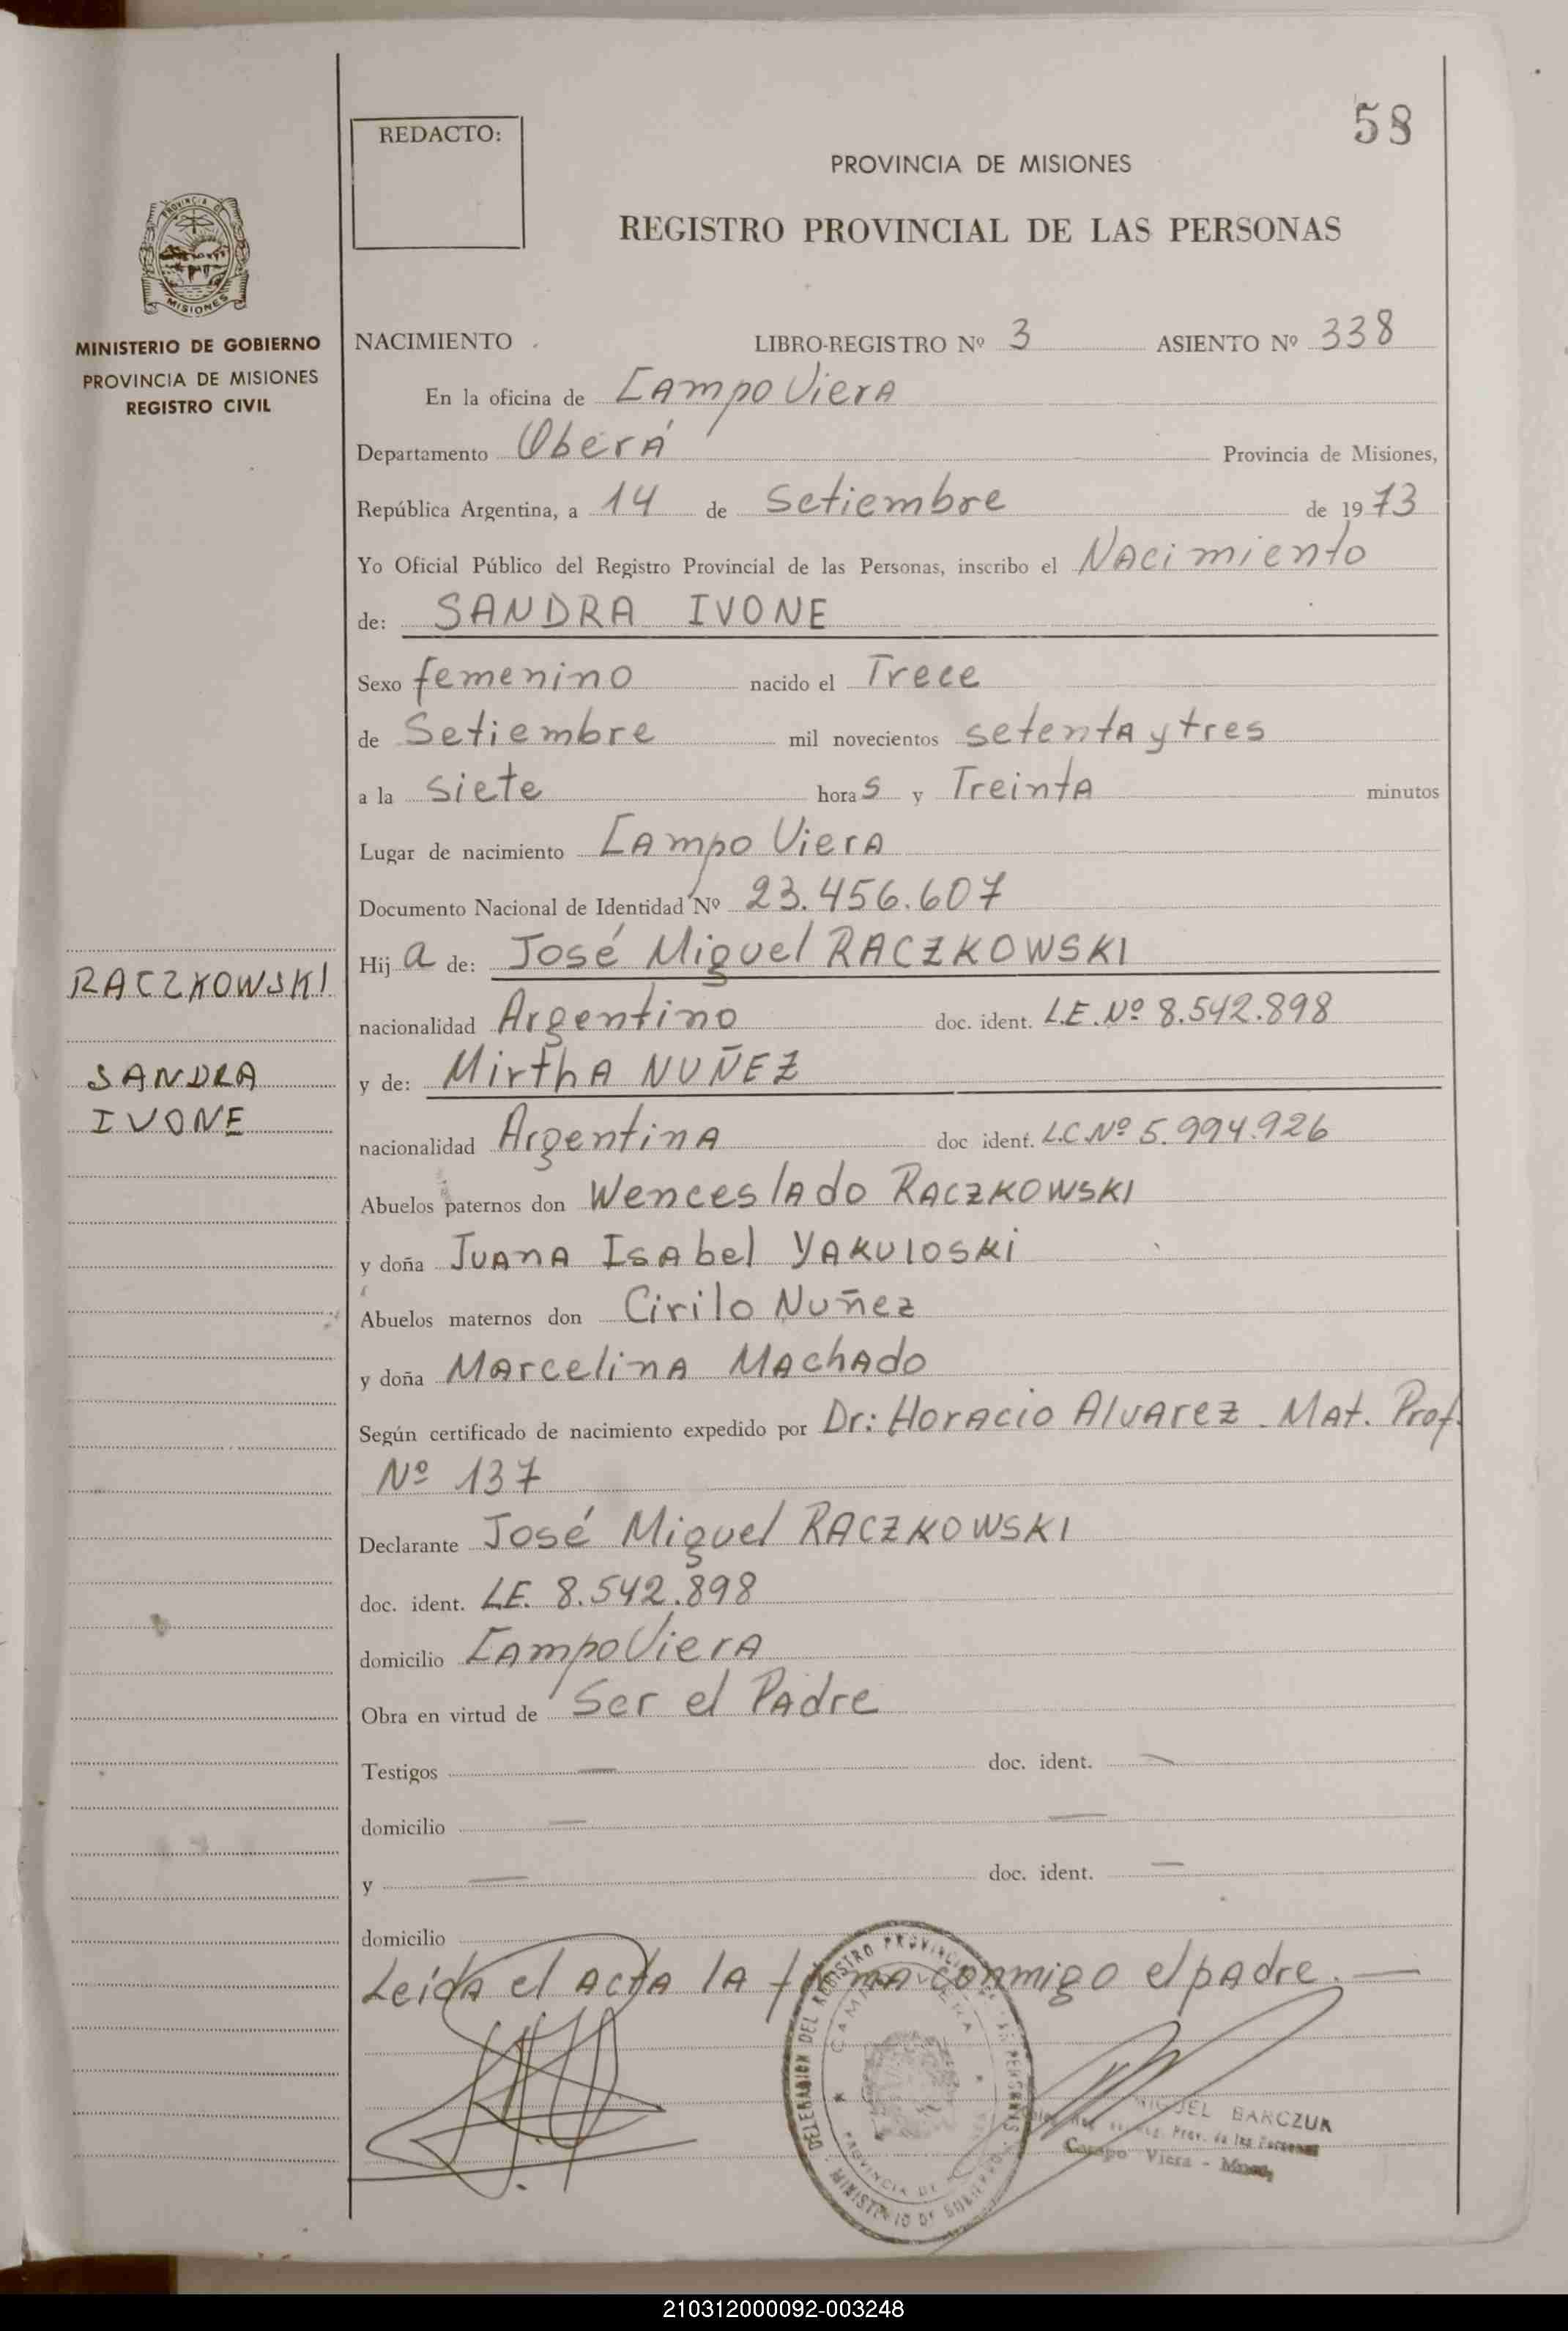 58
REDACTO:
PROVINCIA DE MISIONES
REGISTRO PROVINCIAL DE LAS PERSONAS
PROVINCIA DE
MISIONES
MINISTERIO DE GOBIERNO
PROVINCIA DE MISIONES
REGISTRO CIVIL
NACIMIENTO LIBRO-REGISTRO Nº 3 ASIENTO Nº 338
En la oficina de Campo Viera
Departamento Oberá Provincia de Misiones,
República Argentina, a 14 de Setiembre de 1973
Yo Oficial Público del Registro Provincial de las Personas, inscribo el Nacimiento
de: SANDRA IVONE
Sexo femenino nacido el Trece
de Setiembre mil novecientos setenta y tres
a la siete horas y Treinta minutos
Lugar de nacimiento Campo Viera
Documento Nacional de Identidad Nº 23.456.607
Hija de: José Miguel RACZKOWSKI
RACZKOWSKI
nacionalidad Argentino doc. ident. L.E. Nº 8.542.898
SANDRA
y de: Mirtha NUÑEZ
IVONE
nacionalidad Argentina doc ident. L.C. Nº 5.994.926
Abuelos paternos don Wenceslado RACZKOWSKI
y doña Juana Isabel YAKULOSKI
Abuelos maternos don Cirilo Nuñez
y doña Marcelina Machado
Según certificado de nacimiento expedido por Dr: Horacio Alvarez - Mat. Prof.
Nº 137
Declarante José Miguel RACZKOWSKI
doc. ident. L.E. 8.542.898
domicilio Campo Viera
Obra en virtud de Ser el Padre
Testigos — doc. ident. —
domicilio — —
y — doc. ident. —
domicilio
Leída el acta la firma conmigo el padre. —
DELEGACION DEL REGISTRO PROVINCIAL DE LAS PERSONAS
CAMPO VIERA
PROVINCIA DE
MINISTERIO DE GOBIERNO
MIGUEL BARCZUK
Prov. de las Personas
Campo Viera - Mnes,
210312000092-003248